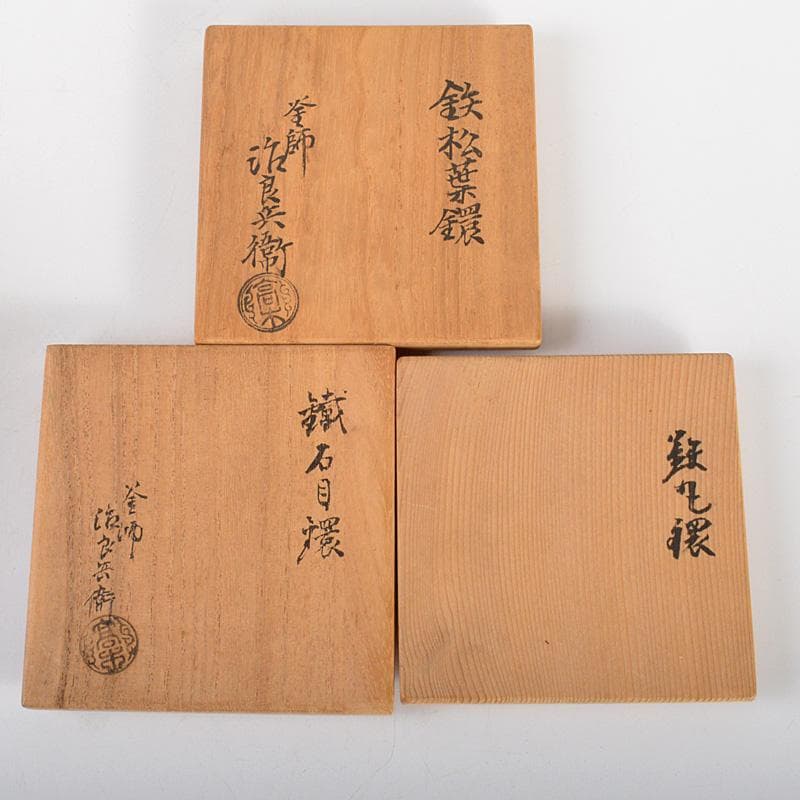 鉄松葉鐶
釜師
治良兵衛
鐵石目環
釜師
治良兵衛
鉄丸環